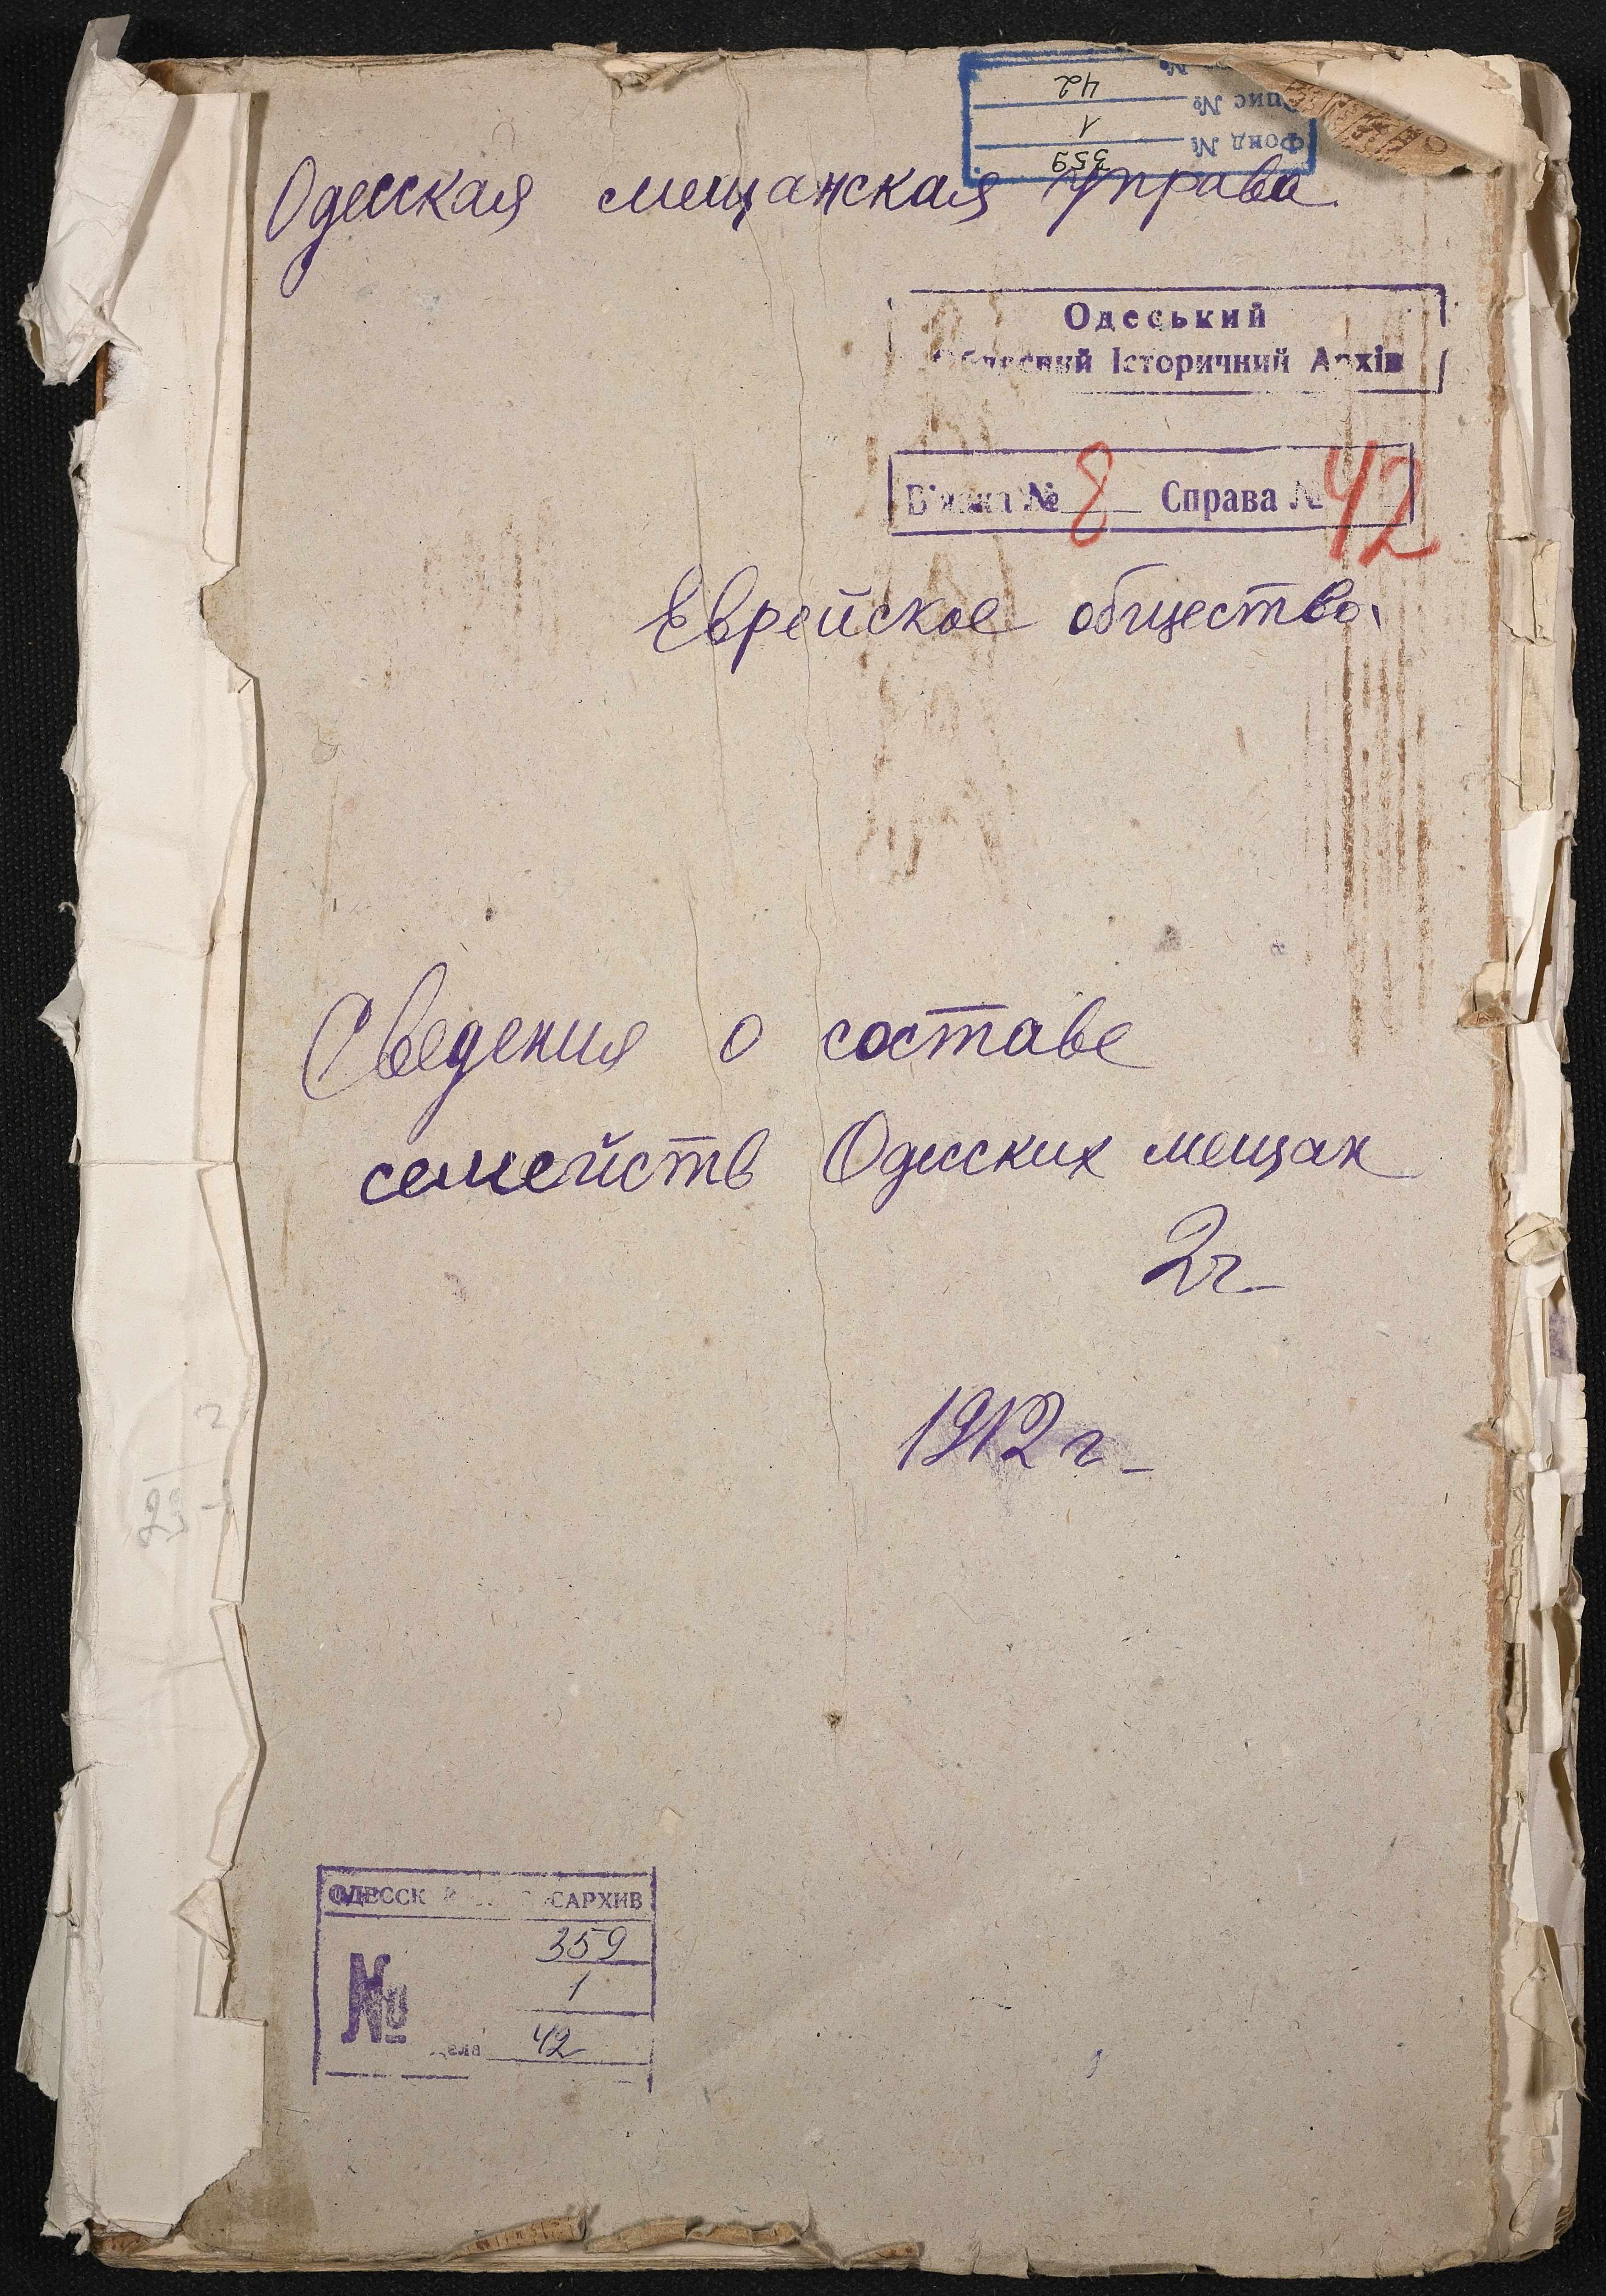 Фонд № 359
Опис № 1
№ 42
Одесская мещанская управа.
Одеський
Обласний Історичний Архів
В'язка № 8 Справа № 42
Еврейское общество.
Сведения о составе
семейств Одесских мещан
2г
1912 г
АРХИВ
359
№ 1
дела 42